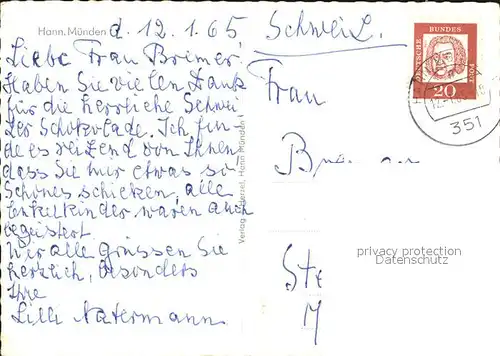 Hann. Münden d. 12.1.65
Liebe Frau Bremer!
Haben Sie vielen Dank
für die herrliche Schwei
zer Schokolade. Ich fin-
de es reizend von Ihnen
dass Sie mir etwas so
Schönes schicken, alle
Enkelkinder waren auch
begeistert.
Wir alle grüssen Sie
herzlich, besonders
Ihre
Lilli Natermann
Verlag Hann. Münden
Schweiz.
Frau
DEUTSCHE BUNDES POST
20
351
privacy protection
Datenschutz